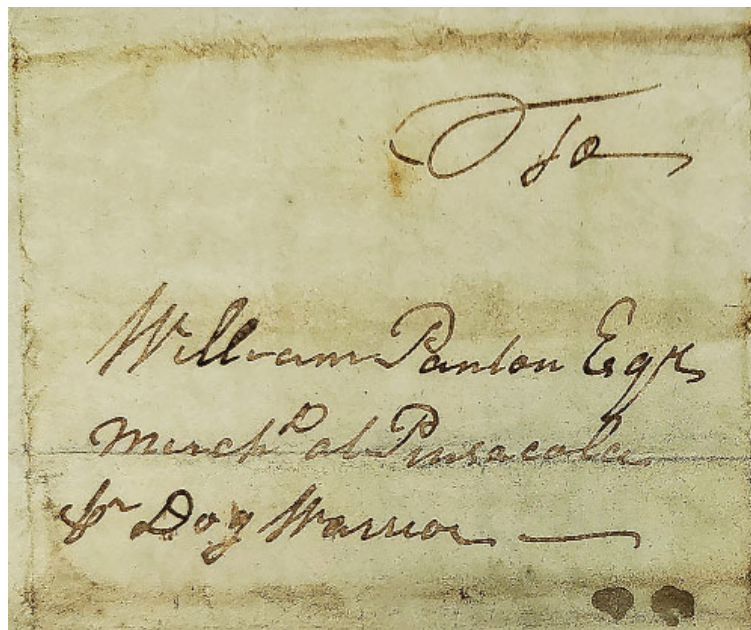 To
William Panton Esqr
Mercht at Pensacola
pr Dog Warrior